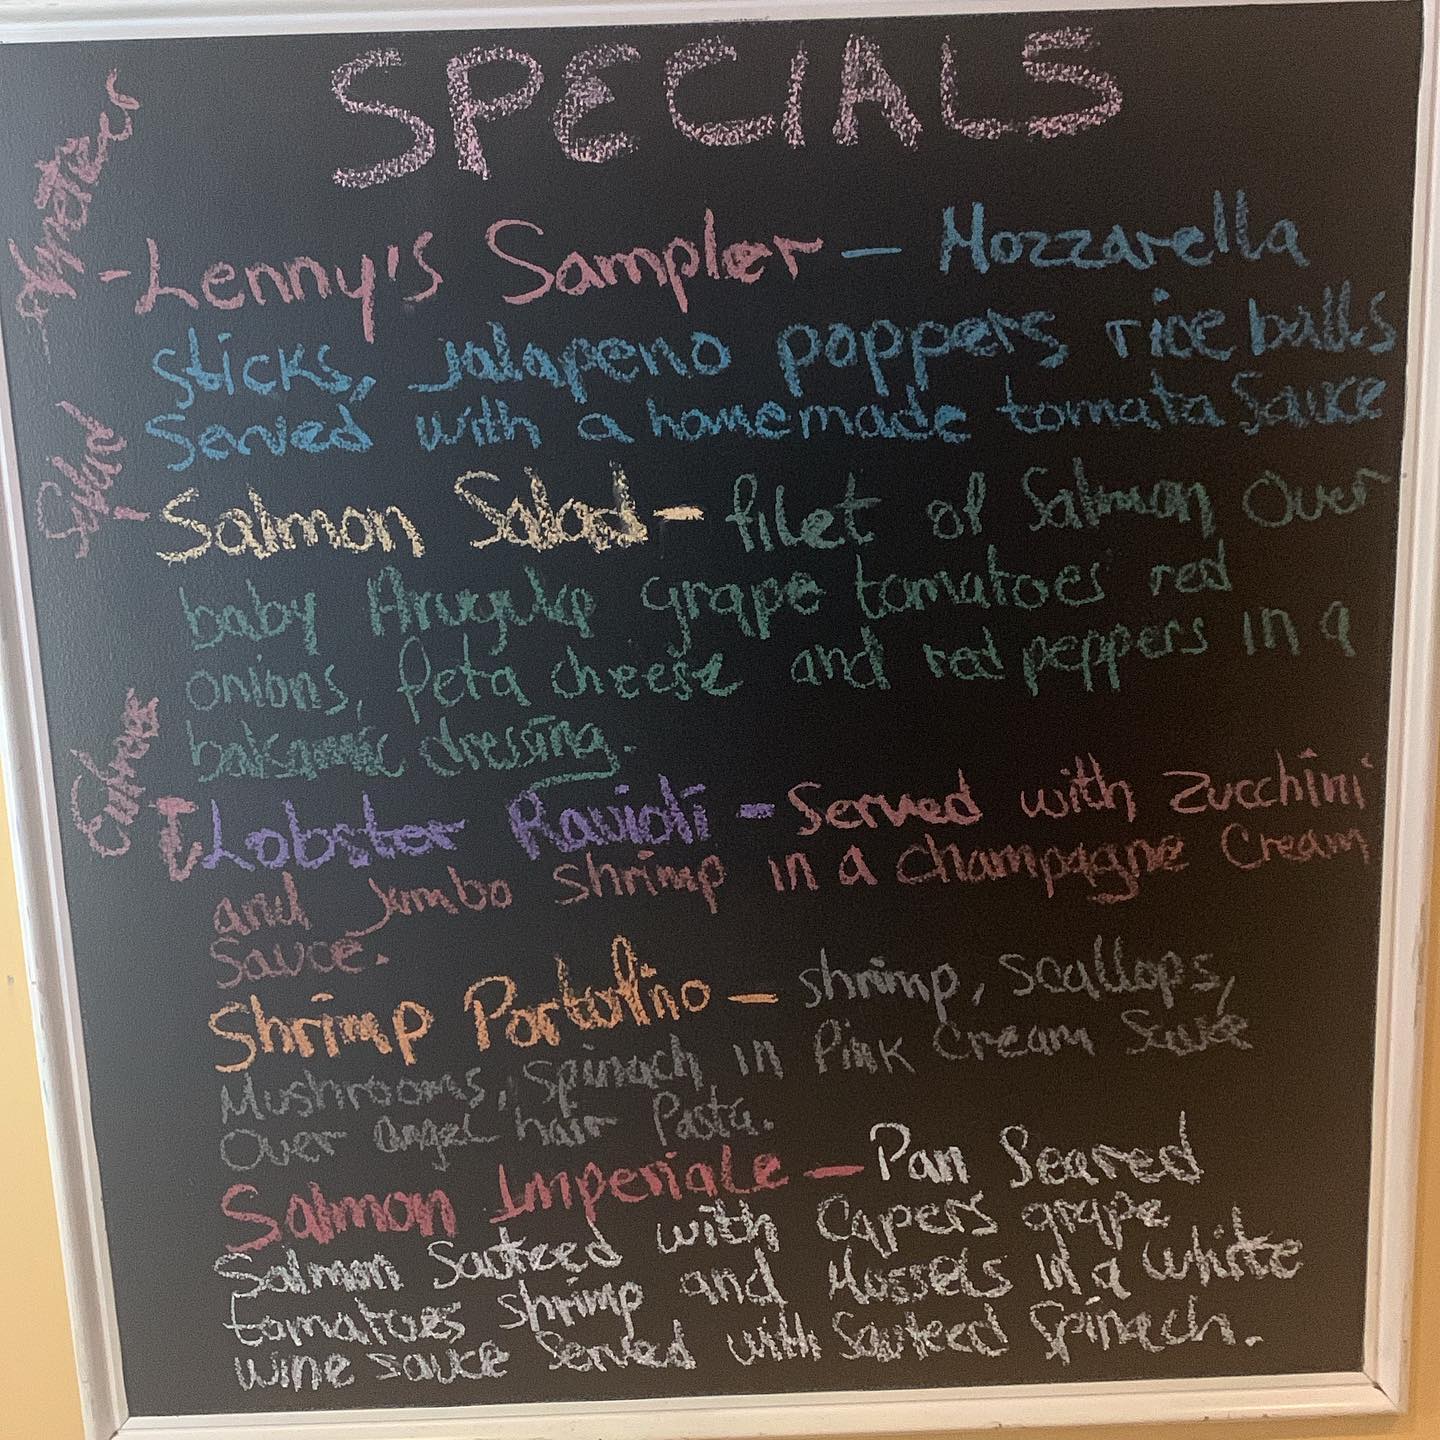 SPECIALS
Lenny's Sampler - Mozzarella
sticks, Jalapeno poppers rice balls
Served with a homemade tomata Sauce
Salmon Salad - filet of Salmon Over
baby Arugula grape tomatoes red
onions, feta cheese and red peppers in a
balsamic dressing.
Lobster Ravioli - Served with Zucchini
and Jumbo shrimp in a Champagne Cream
Sauce.
Shrimp Portofino - shrimp, scallops,
Mushrooms, Spinach in Pink Cream Sauce
Over angel hair Pasta.
Salmon Imperiale - Pan Seared
Salmon Sauteed with Capers grape
tomatoes shrimp and Mussels in a white
wine sauce Served with Sauteed Spinach.